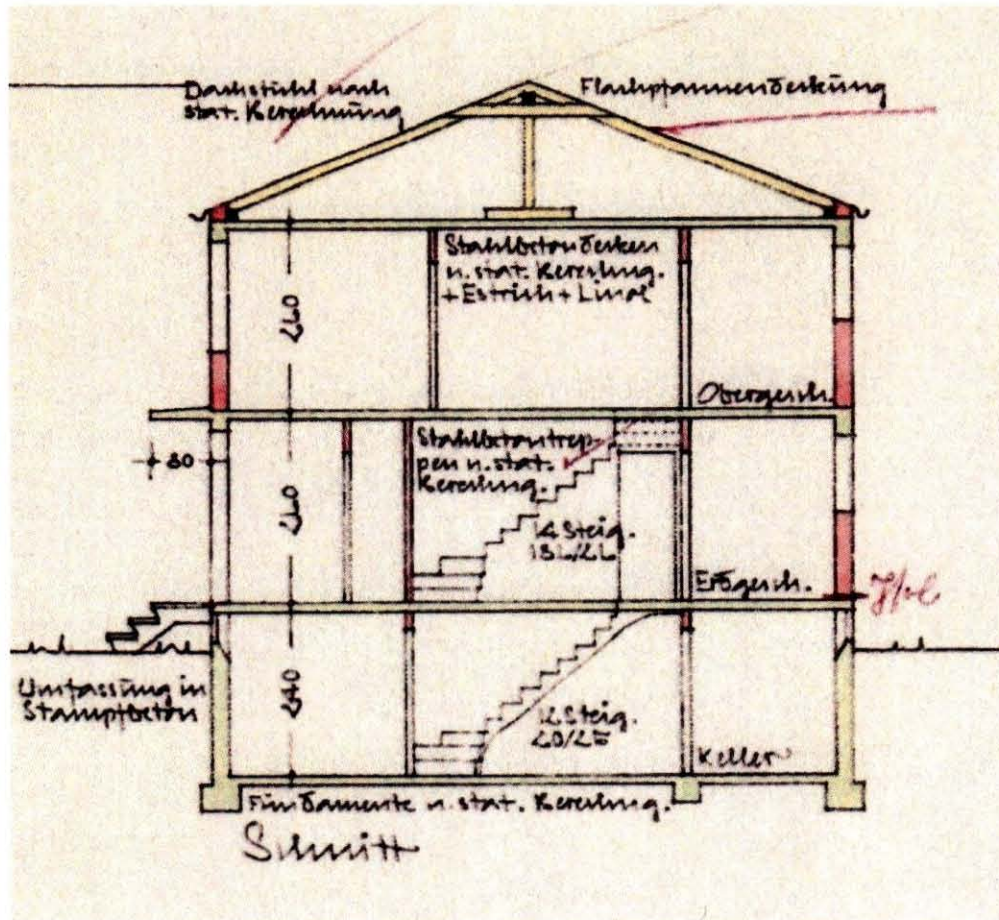 Dachstuhl nach
stat. Berechnung
Flachpfannendeckung
Stahlbetondecken
n. stat. Berechng.
+ Estrich + Linol
260
Obergesch.
80
Stahlbetontrep-
pen n. stat.
Berechng.
260
14 Steig.
Erdgesch.
Umfassung in
Stampfbeton
240
12 Steig.
20/25
Keller
Fundamente n. stat. Berechng.
Schnitt